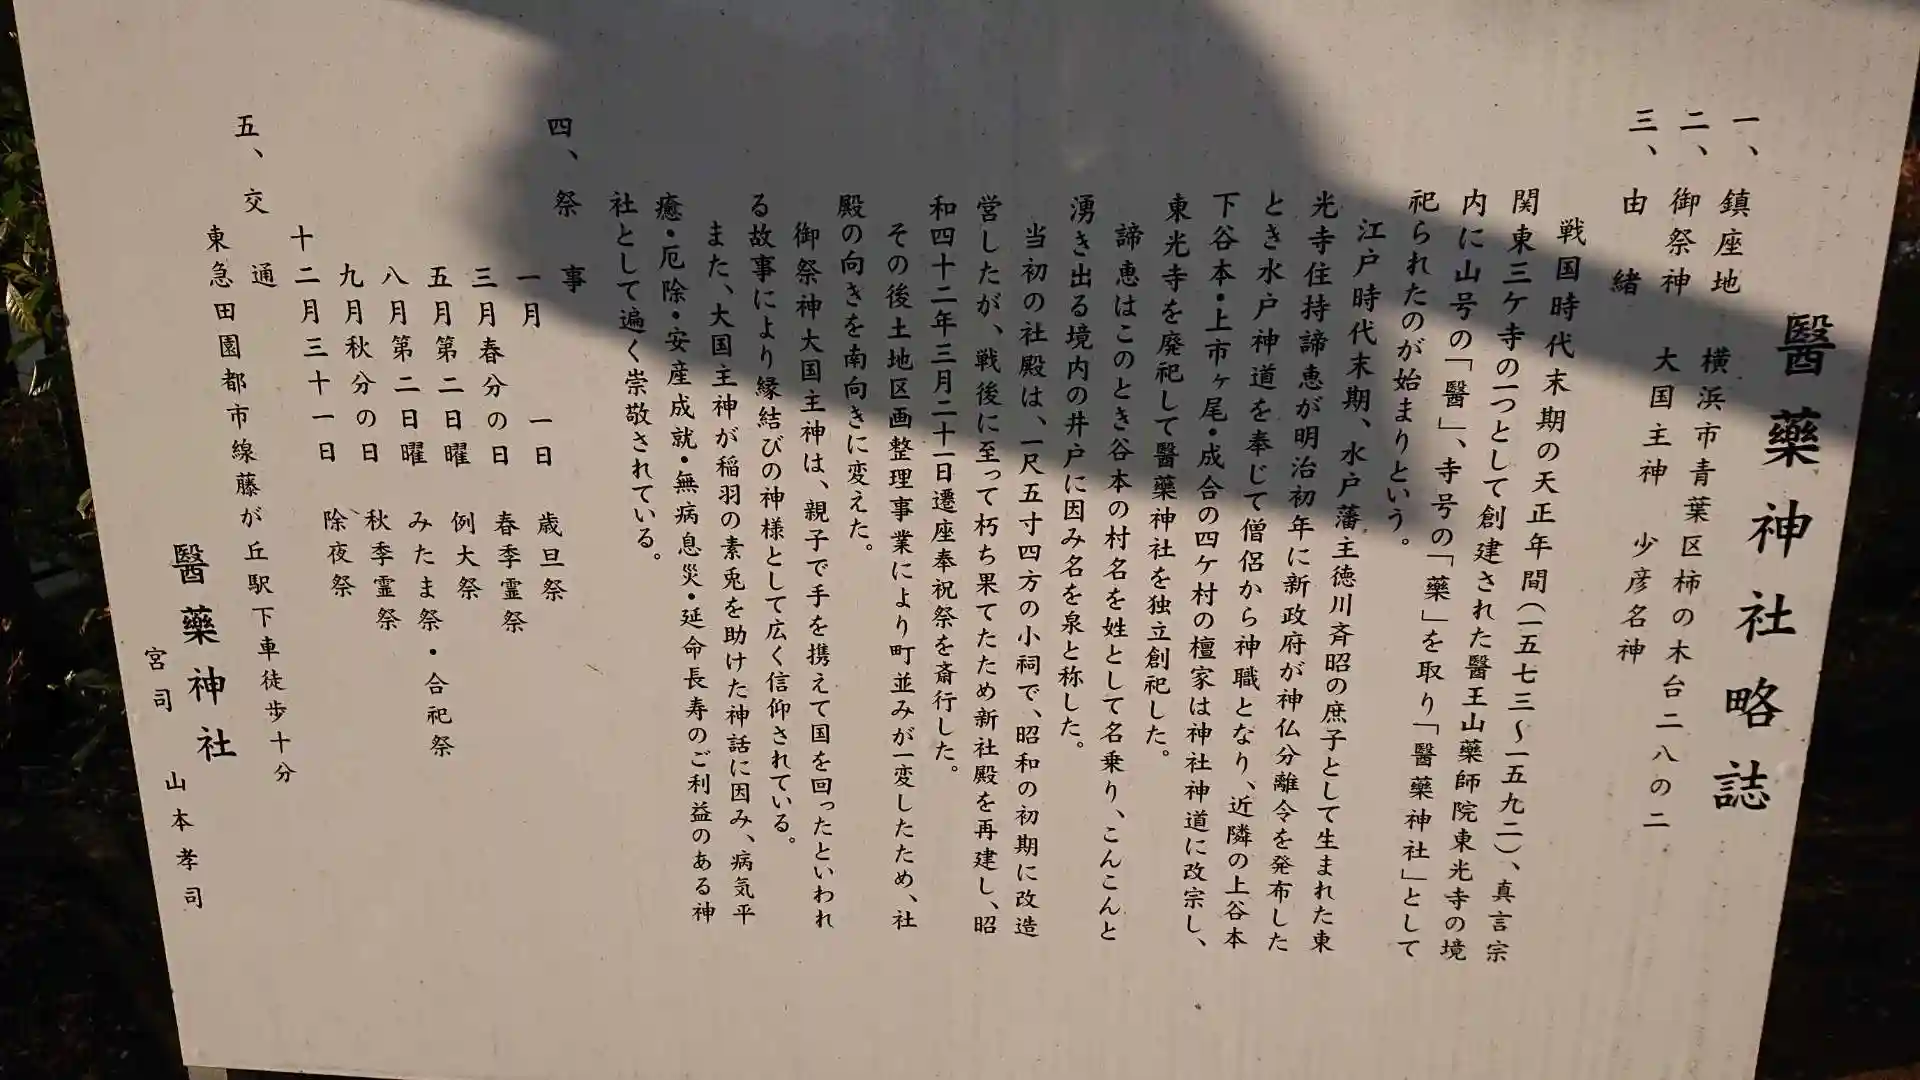 醫藥神社略誌
一、鎮座地 横浜市青葉区柿の木台二八の二
二、御祭神 大国主神 少彦名神
三、由緒
戦国時代末期の天正年間(一五七三〜一五九二)、真言宗
関東三ケ寺の一つとして創建された醫王山藥師院東光寺の境
内に山号の「醫」、寺号の「藥」を取り「醫藥神社」として
祀られたのが始まりという。
江戸時代末期、水戸藩主徳川斉昭の庶子として生まれた東
光寺住持諦恵が明治初年に新政府が神仏分離令を発布した
とき水戸神道を奉じて僧侶から神職となり、近隣の上谷本
下谷本・上市ヶ尾・成合の四ケ村の檀家は神社神道に改宗し、
東光寺を廃祀して醫藥神社を独立創祀した。
諦恵はこのとき谷本の村名を姓として名乗り、こんこんと
湧き出る境内の井戸に因み名を泉と称した。
当初の社殿は、一尺五寸四方の小祠で、昭和の初期に改造
営したが、戦後に至って朽ち果てたため新社殿を再建し、昭
和四十二年三月二十一日遷座奉祝祭を斎行した。
その後土地区画整理事業により町並みが一変したため、社
殿の向きを南向きに変えた。
御祭神大国主神は、親子で手を携えて国を回ったといわれ
る故事により縁結びの神様として広く信仰されている。
また、大国主神が稲羽の素兎を助けた神話に因み、病気平
癒・厄除・安産成就・無病息災・延命長寿のご利益のある神
社として遍く崇敬されている。
四、祭事
一月 一日 歳旦祭
三月春分の日 春季霊祭
五月第二日曜 例大祭
八月第二日曜 みたま祭・合祀祭
九月秋分の日 秋季霊祭
十二月三十一日 除夜祭
五、交通
東急田園都市線藤が丘駅下車徒歩十分
醫藥神社
宮司 山本孝司